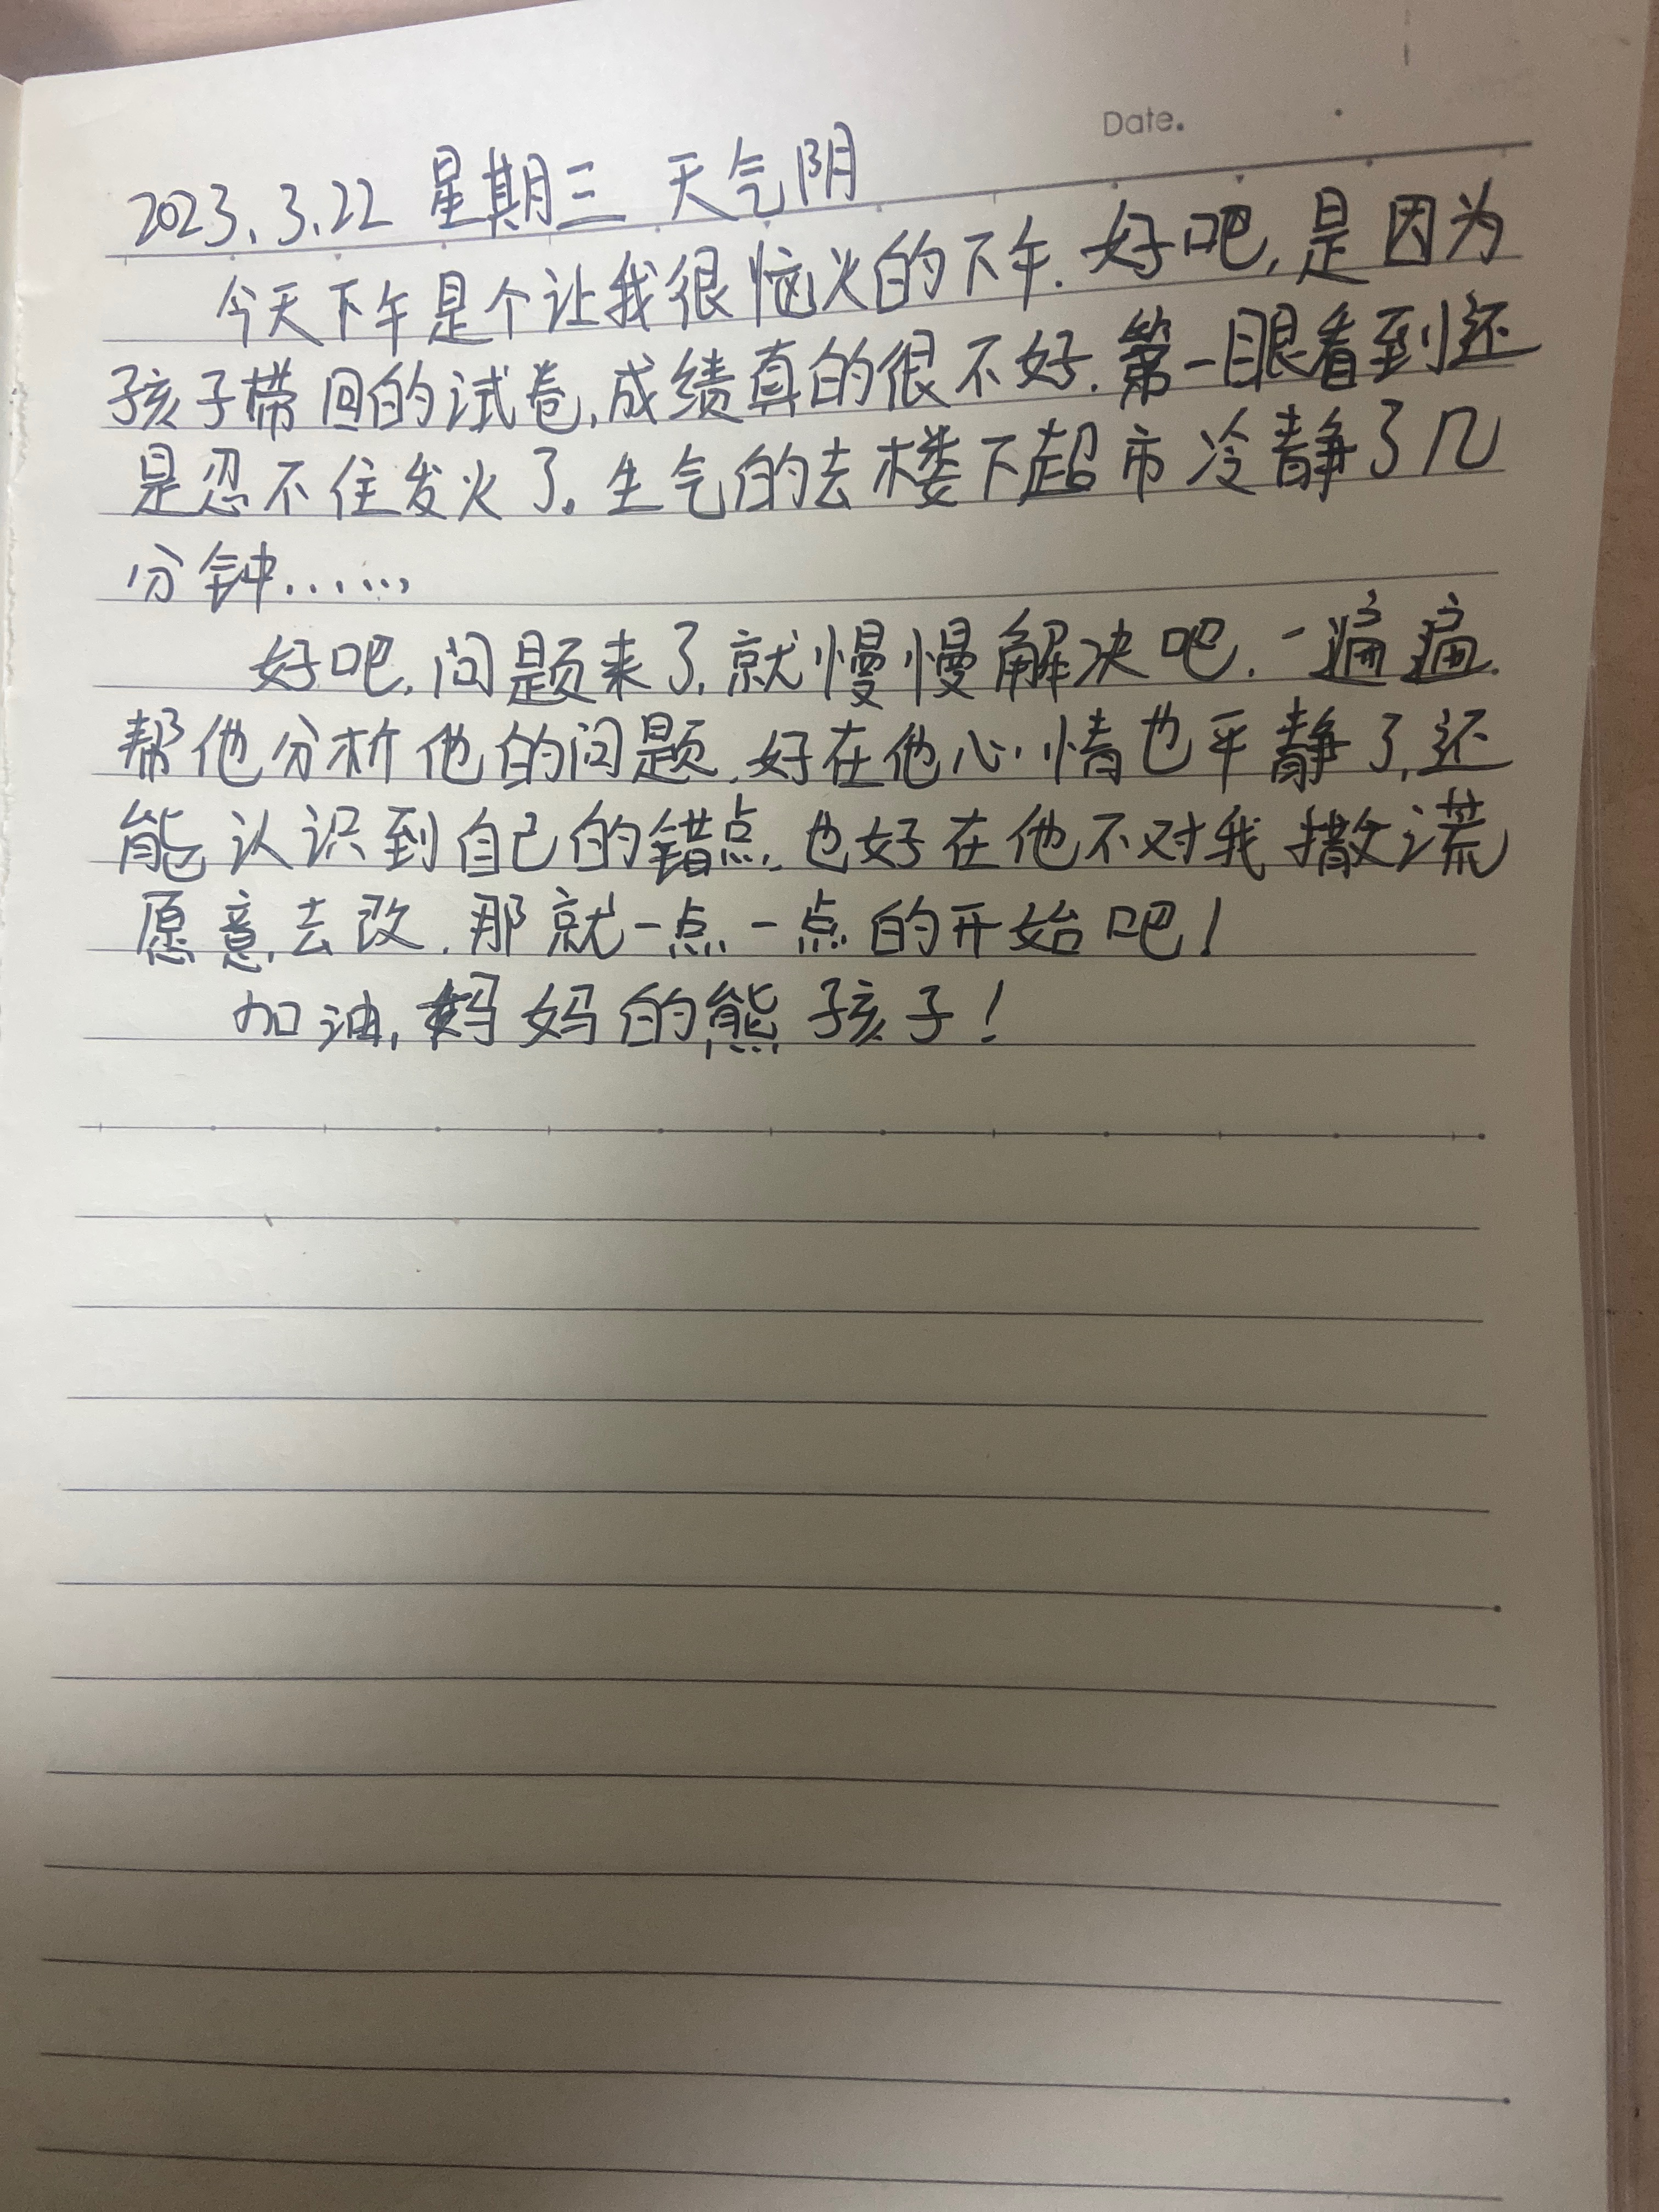 Date.
2023.3.22 星期三 天气阴
今天下午是个让我很恼火的下午.好吧,是因为
孩子带回的试卷,成绩真的很不好.第一眼看到还
是忍不住发火了。生气的去楼下超市冷静了几
分钟……
好吧,问题来了,就慢慢解决吧.一遍遍.
帮他分析他的问题.好在他心情也平静了,还
能认识到自己的错点.也好在他不对我撒谎
愿意去改.那就一点一点的开始吧!
加油,妈妈的熊孩子!